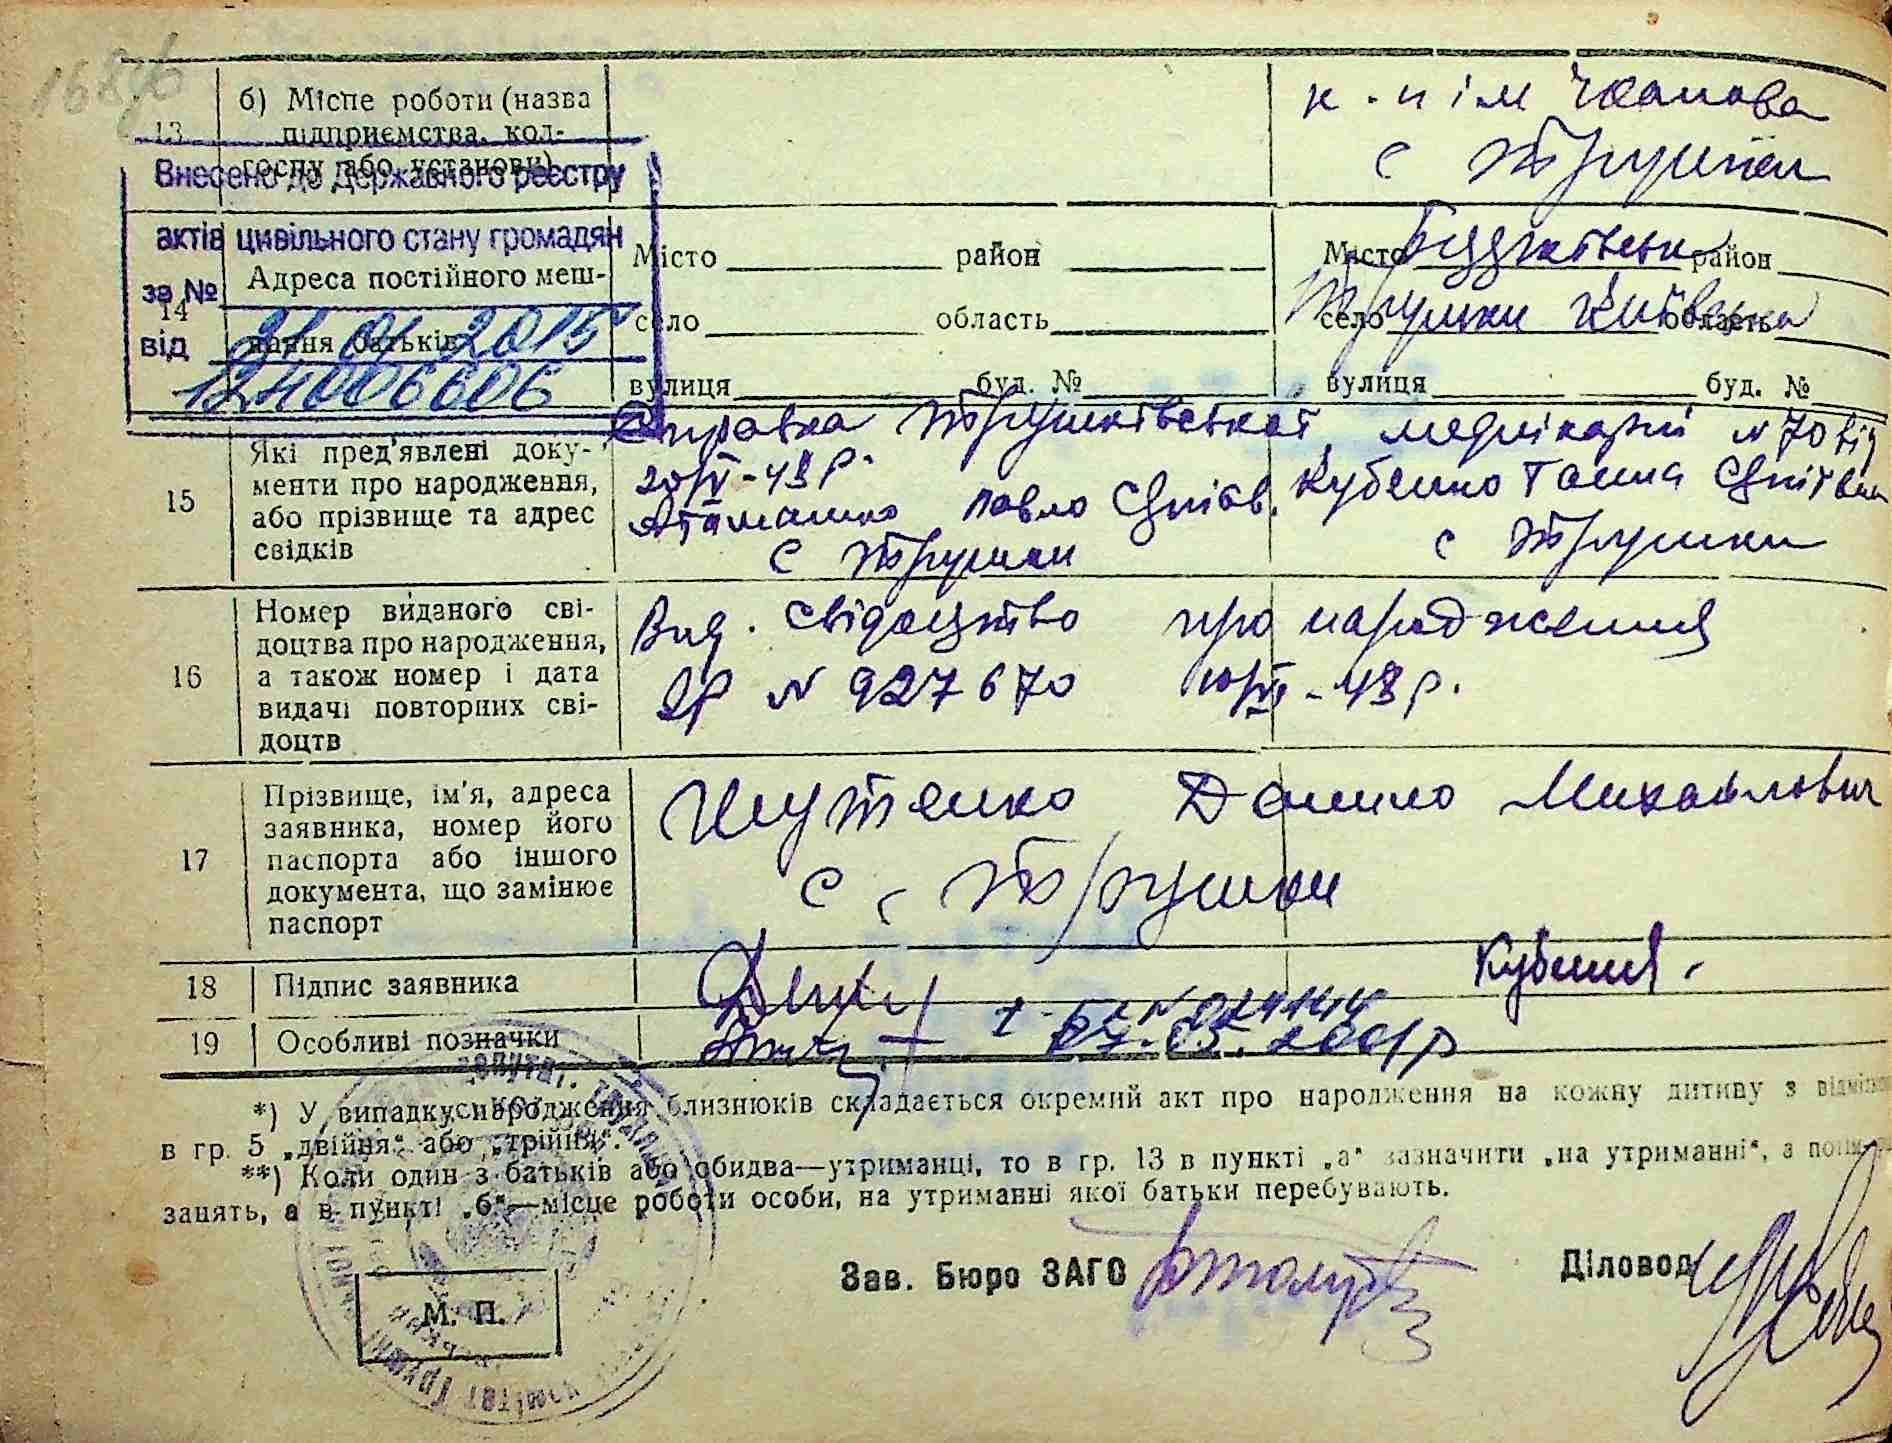 168
13
б) Місце роботи (назва
підприємства, кол-
госпу або установи)
к-п ім Чапаєва
с Трушки
Внесено до Державного реєстру
актів цивільного стану громадян
за №
від
21 01 2015
124006606
14
Адреса постійного меш-
кання батьків
Місто район
село область
вулиця буд. №
Місто район
село Трушки Київська область
вулиця буд. №
15
Які пред'явлені доку-
менти про народження,
або прізвище та адрес
свідків
Справка Трушківської медлікарні № 70 від
20/VI-43 р.
Атаманко Павло Кубенко Ганна
с Трушки с Трушки
16
Номер виданого сві-
доцтва про народження,
а також номер і дата
видачі повторних сві-
доцтв
Вид. свідоцтво про народження
№ 927670 43 р.
17
Прізвище, ім'я, адреса
заявника, номер його
паспорта або іншого
документа, що замінює
паспорт
Шутенко Данило Михайлович
с. Трушки
18
Підпис заявника
19
Особливі позначки
05. 2001р
*) У випадку народження близнюків складається окремий акт про народження на кожну дитину з
в гр. 5 „двійня“ або „трійня“.
**) Коли один з батьків або обидва—утриманці, то в гр. 13 в пункті „а“ зазначити „на утриманні“, а
занять, а в пункті „б“—місце роботи особи, на утриманні якої батьки перебувають.
Зав. Бюро ЗАГС
Діловод
М. П.